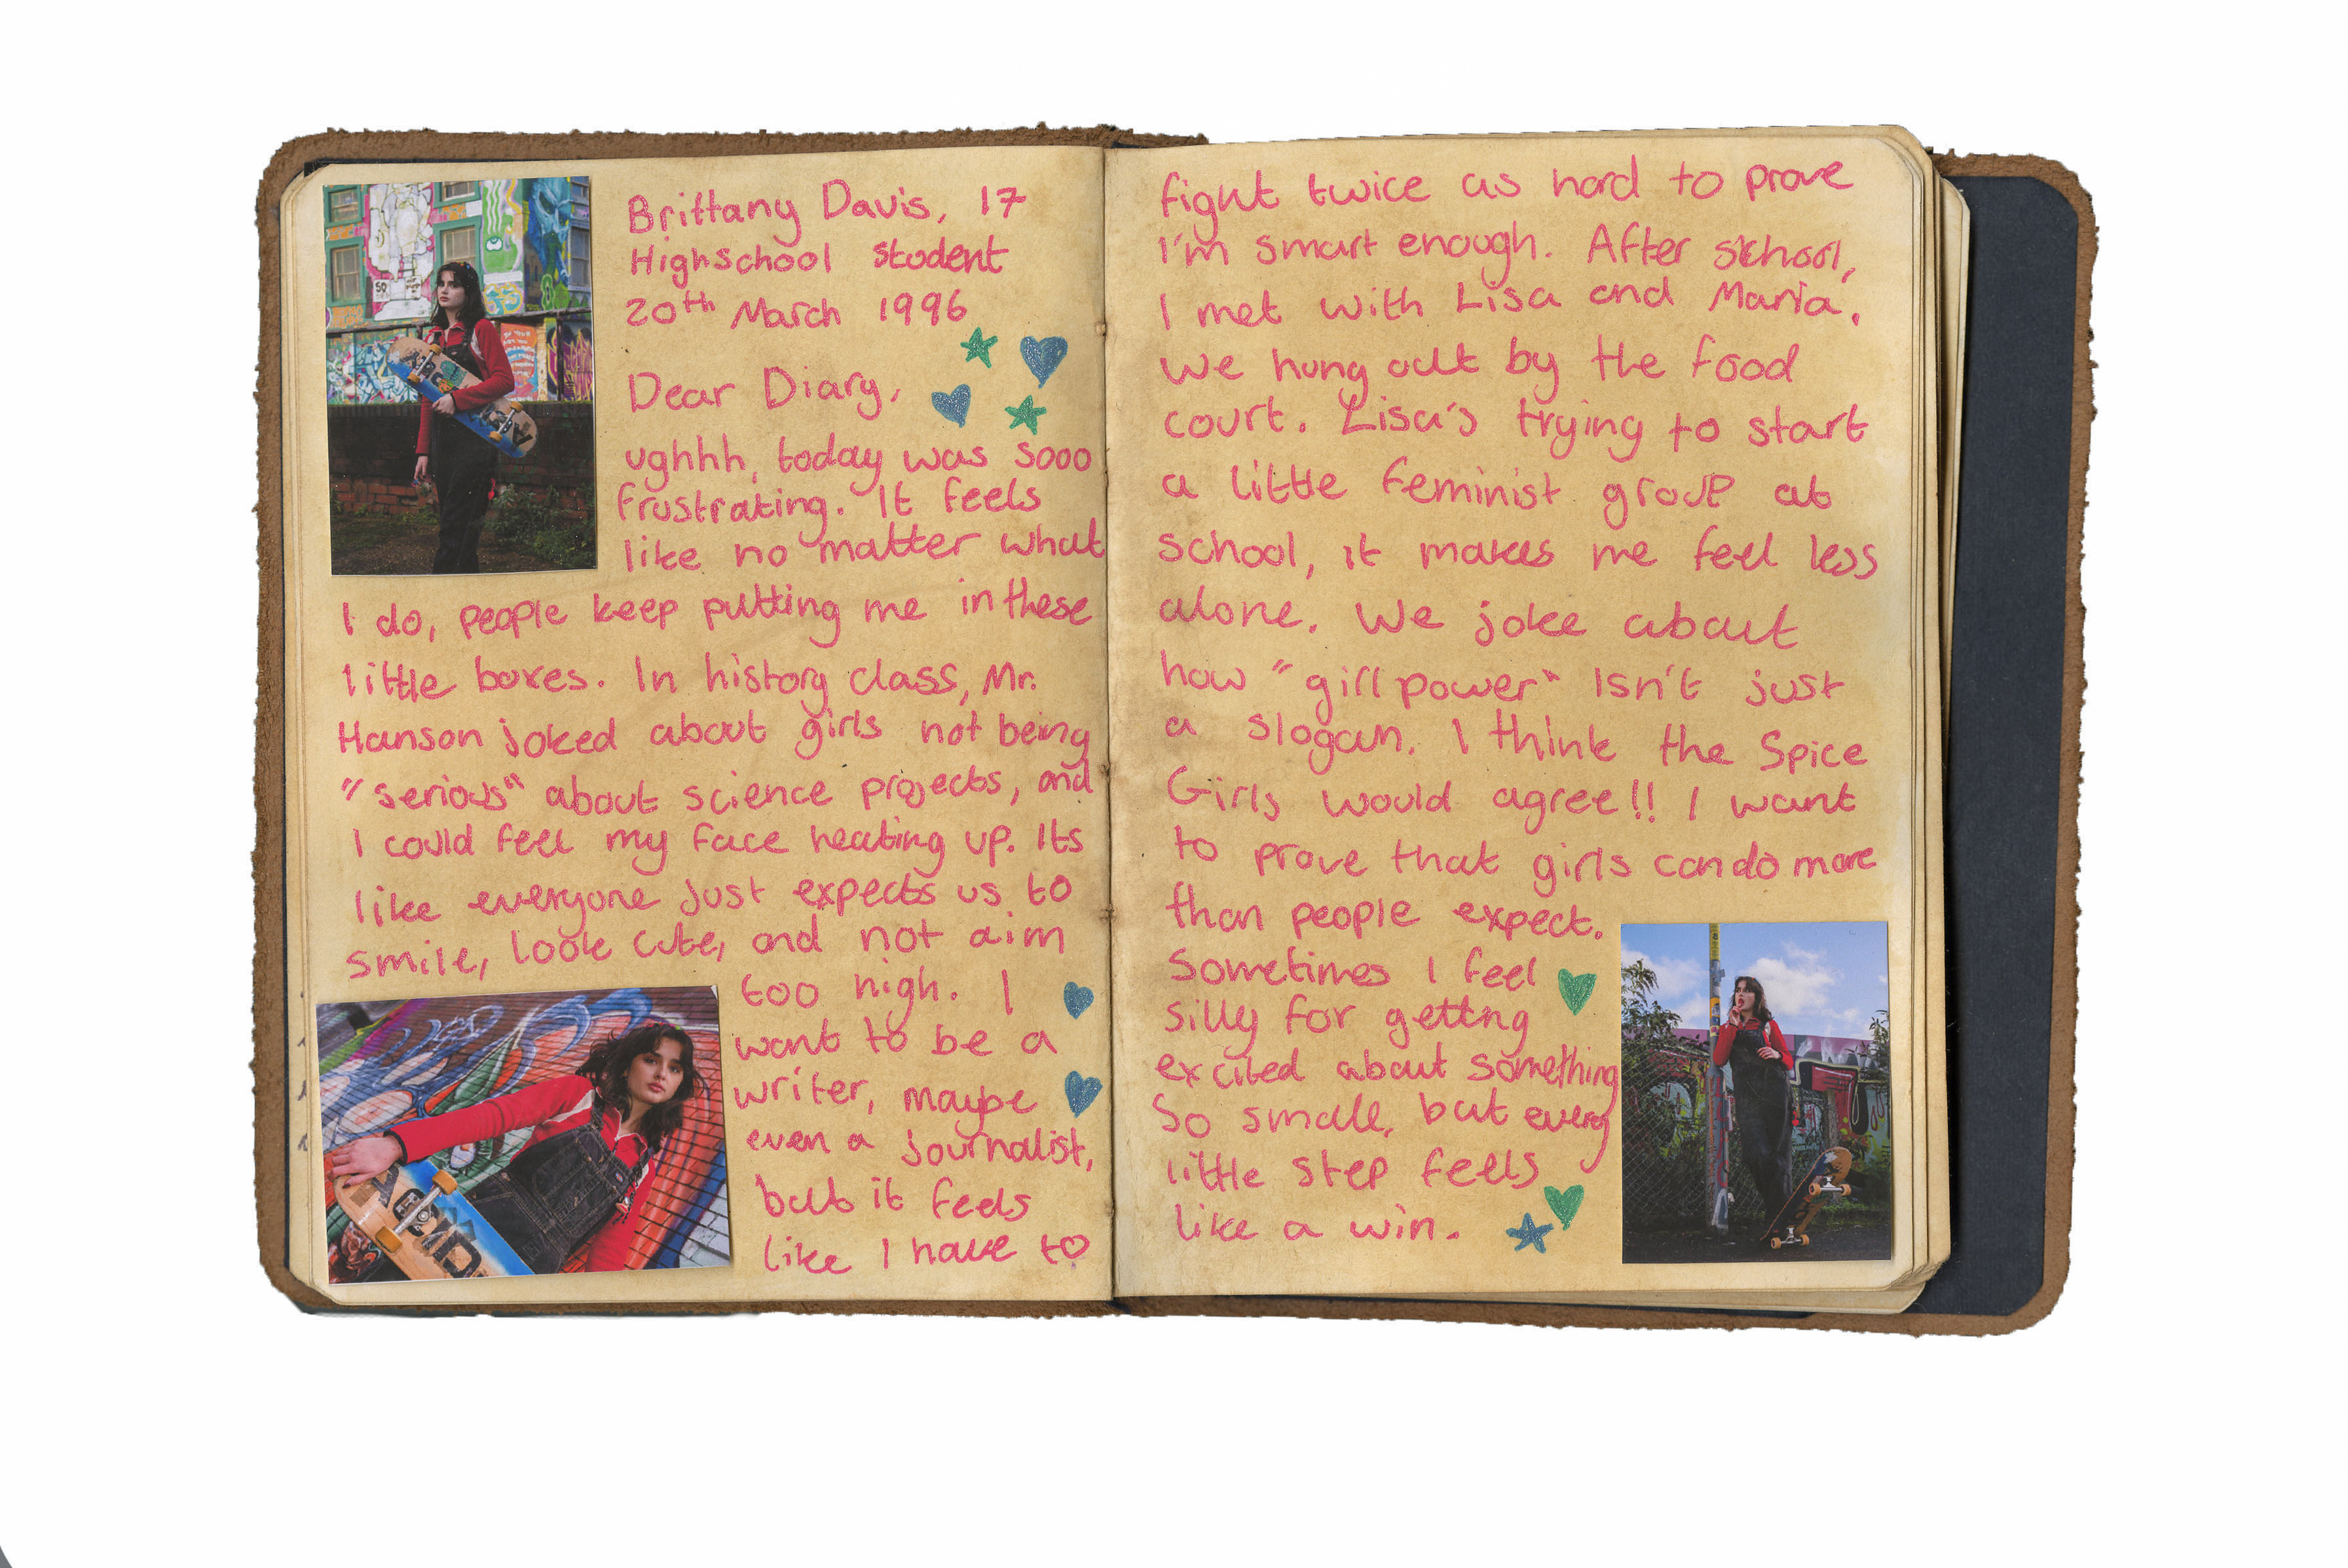 Brittany Davis, 17
Highschool student
20th March 1996
Dear Diary,
ughhh, today was sooo
frustrating. It feels
like no matter what
I do, people keep putting me in these
little boxes. In history class, Mr.
Hanson joked about girls not being
"serious" about science projects, and
I could feel my face heating up. Its
like everyone just expects us to
smile, look cute, and not aim
too high. I
want to be a
writer, maybe
even a journalist,
but it feels
like I have to
fight twice as hard to prove
I'm smart enough. After school,
I met with Lisa and Maria.
We hung out by the food
court. Lisa's trying to start
a little feminist group at
school, it makes me feel less
alone. We joke about
how "girl power" isn't just
a slogan. I think the Spice
Girls would agree!! I want
to prove that girls can do more
than people expect.
Sometimes I feel
silly for getting
excited about something
so small, but every
little step feels
like a win.